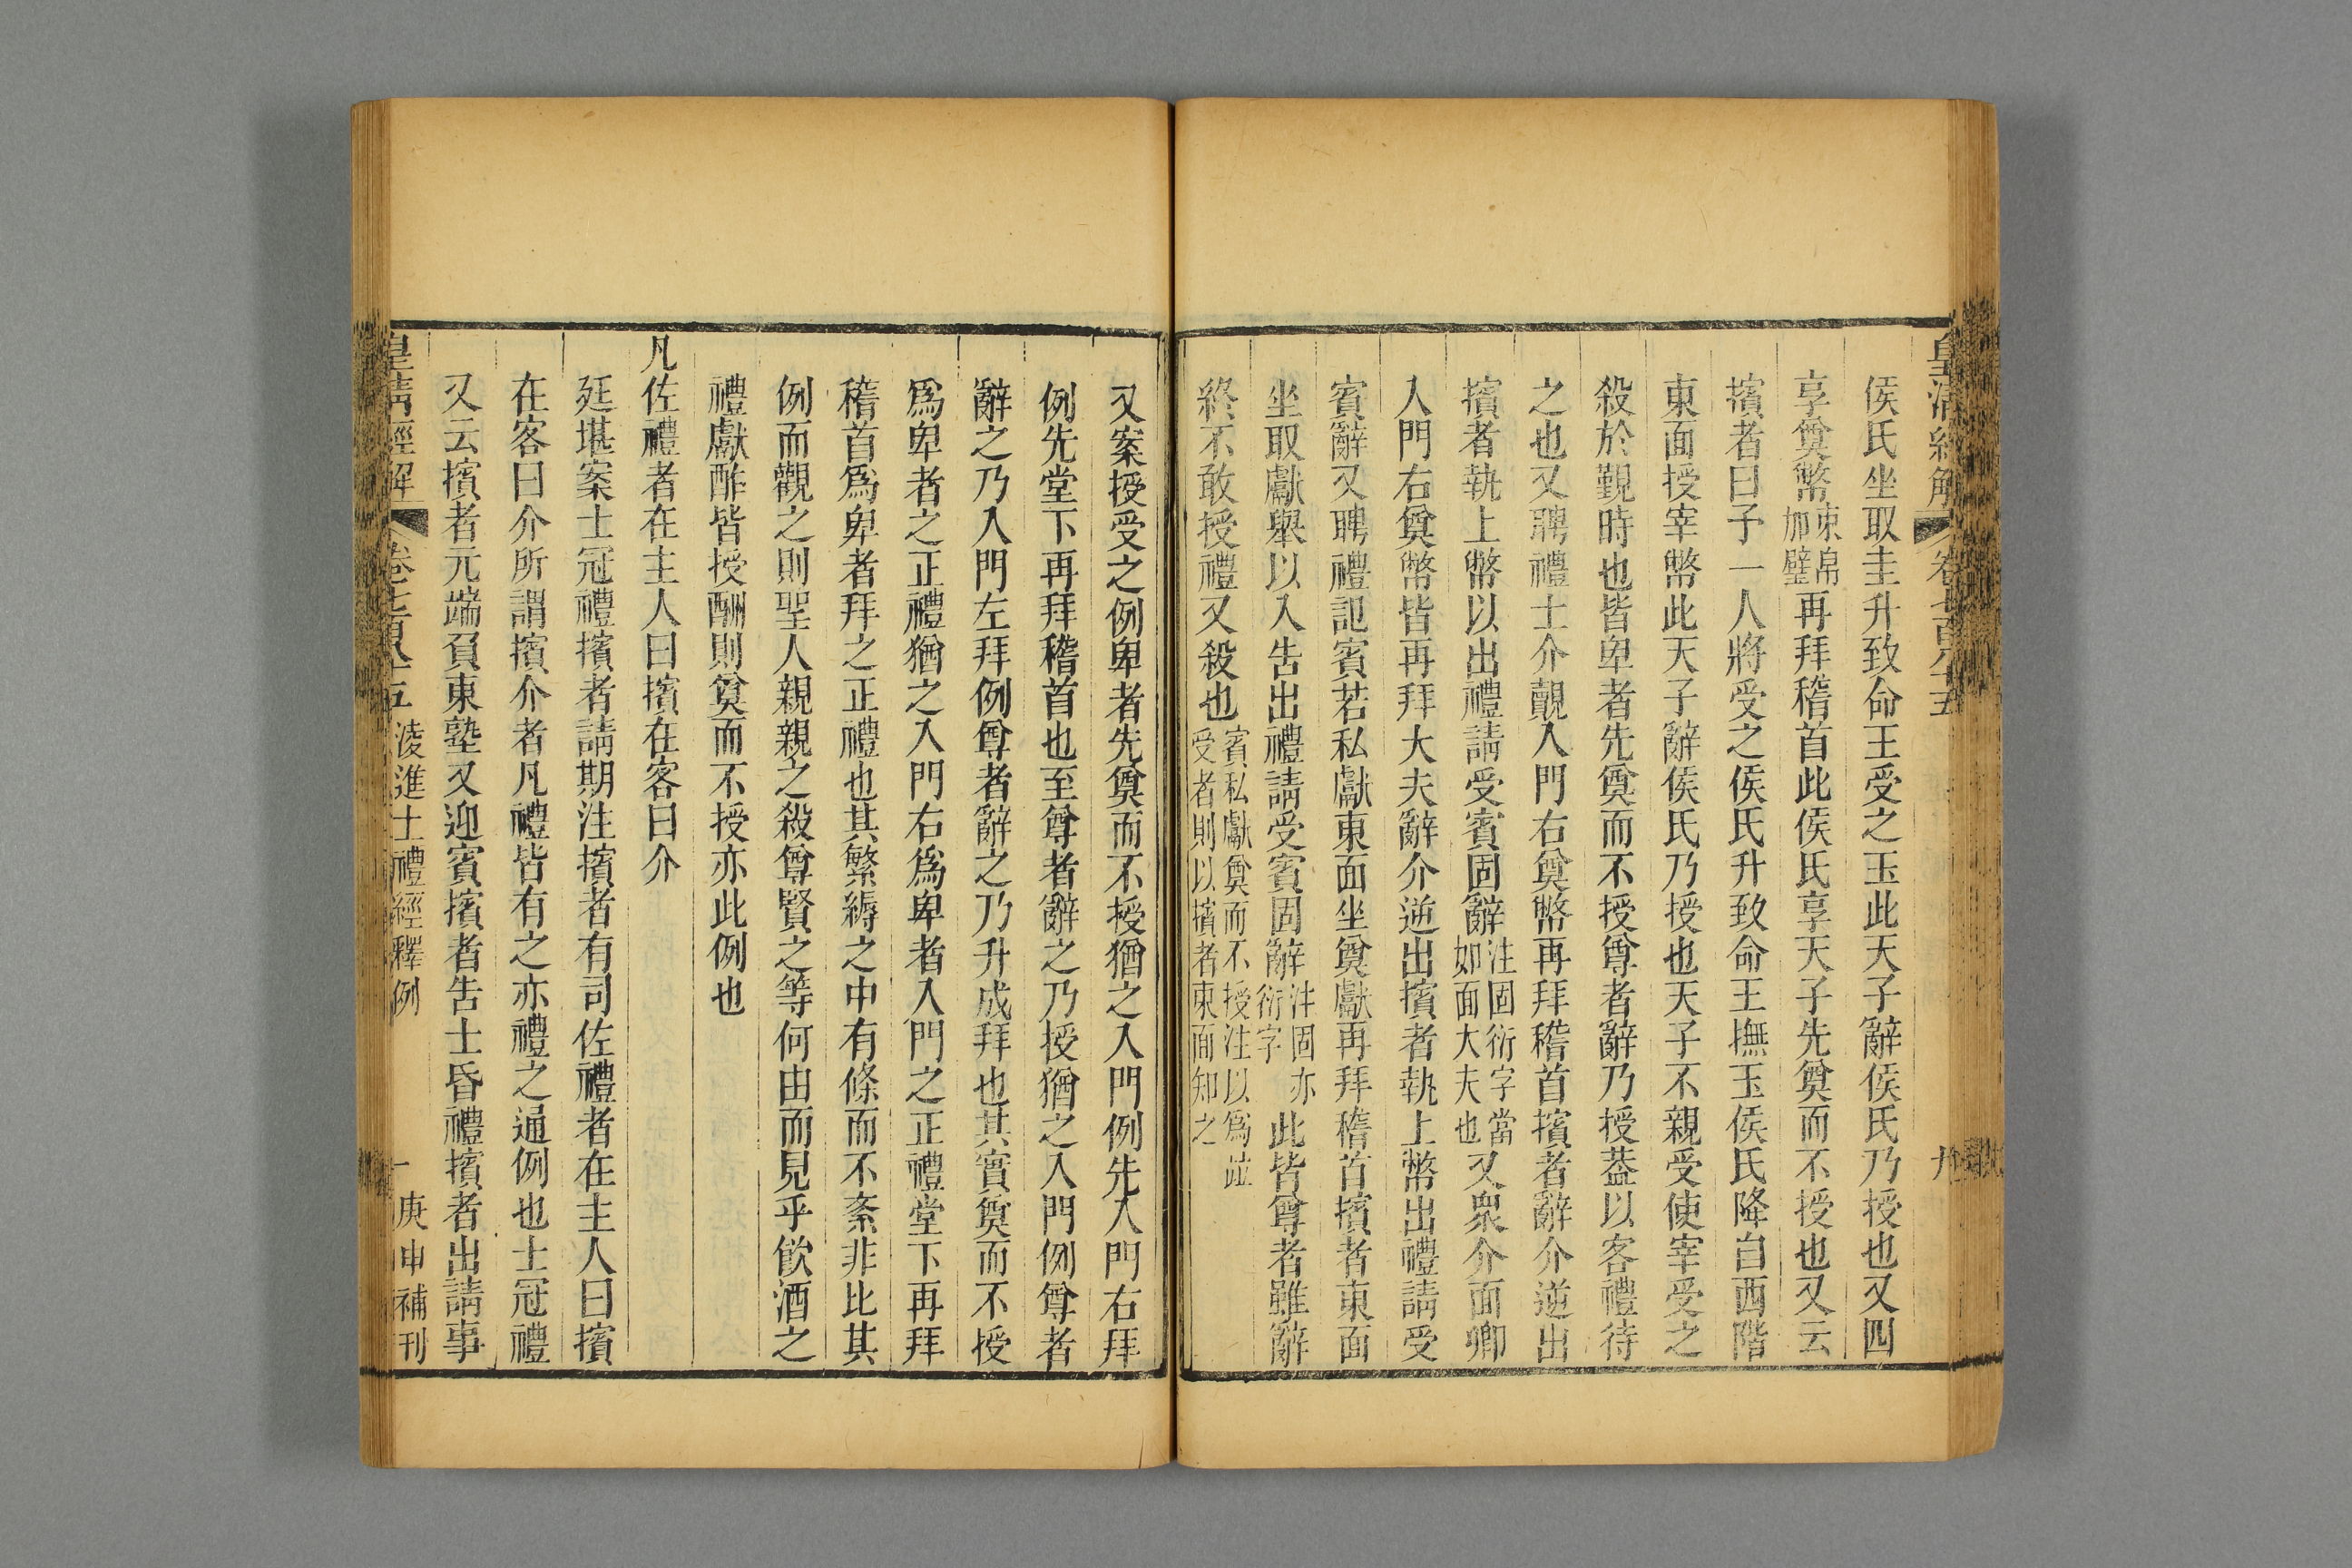 皇清經解 卷七百八十五 九
侯氏坐取圭升致命王受之玉此天子辭侯氏乃授也又四
享奠幣束帛加璧再拜稽首此侯氏享天子先奠而不授也又云
擯者曰予一人將受之侯氏升致命王撫玉侯氏降自西階
東面授宰幣此天子辭侯氏乃授也天子不親受使宰受之
殺於覲時也皆卑者先奠而不授尊者辭乃授葢以客禮待
之也又聘禮士介覿入門右奠幣再拜稽首擯者辭介逆出
擯者執上幣以出禮請受賓固辭注固衍字當如面大夫也又眾介面卿
入門右奠幣皆再拜大夫辭介逆出擯者執上幣出禮請受
賓辭又聘禮記賓若私獻東面坐奠獻再拜稽首擯者東面
坐取獻舉以入告出禮請受賓固辭注固亦衍字此皆尊者雖辭
終不敢授禮又殺也賓私獻奠而不授注以爲竝受者則以擯者東面知之
又案授受之例卑者先奠而不授猶之入門例先入門右拜
例先堂下再拜稽首也至尊者辭之乃授猶之入門例尊者
辭之乃入門左拜例尊者辭之乃升成拜也其實奠而不授
爲卑者之正禮猶之入門右爲卑者入門之正禮堂下再拜
稽首爲卑者拜之正禮也其繁縟之中有條而不紊非比其
例而觀之則聖人親親之殺尊賢之等何由而見乎飲酒之
禮獻酢皆授酬則奠而不授亦此例也
凡佐禮者在主人曰擯在客曰介
廷堪案士冠禮擯者請期注擯者有司佐禮者在主人曰擯
在客曰介所謂擯介者凡禮皆有之亦禮之通例也士冠禮
又云擯者元端負東塾又迎賓擯者告士昏禮擯者出請事
皇清經解 卷七百八十五 淩進士禮經釋例 一 庚申補刊